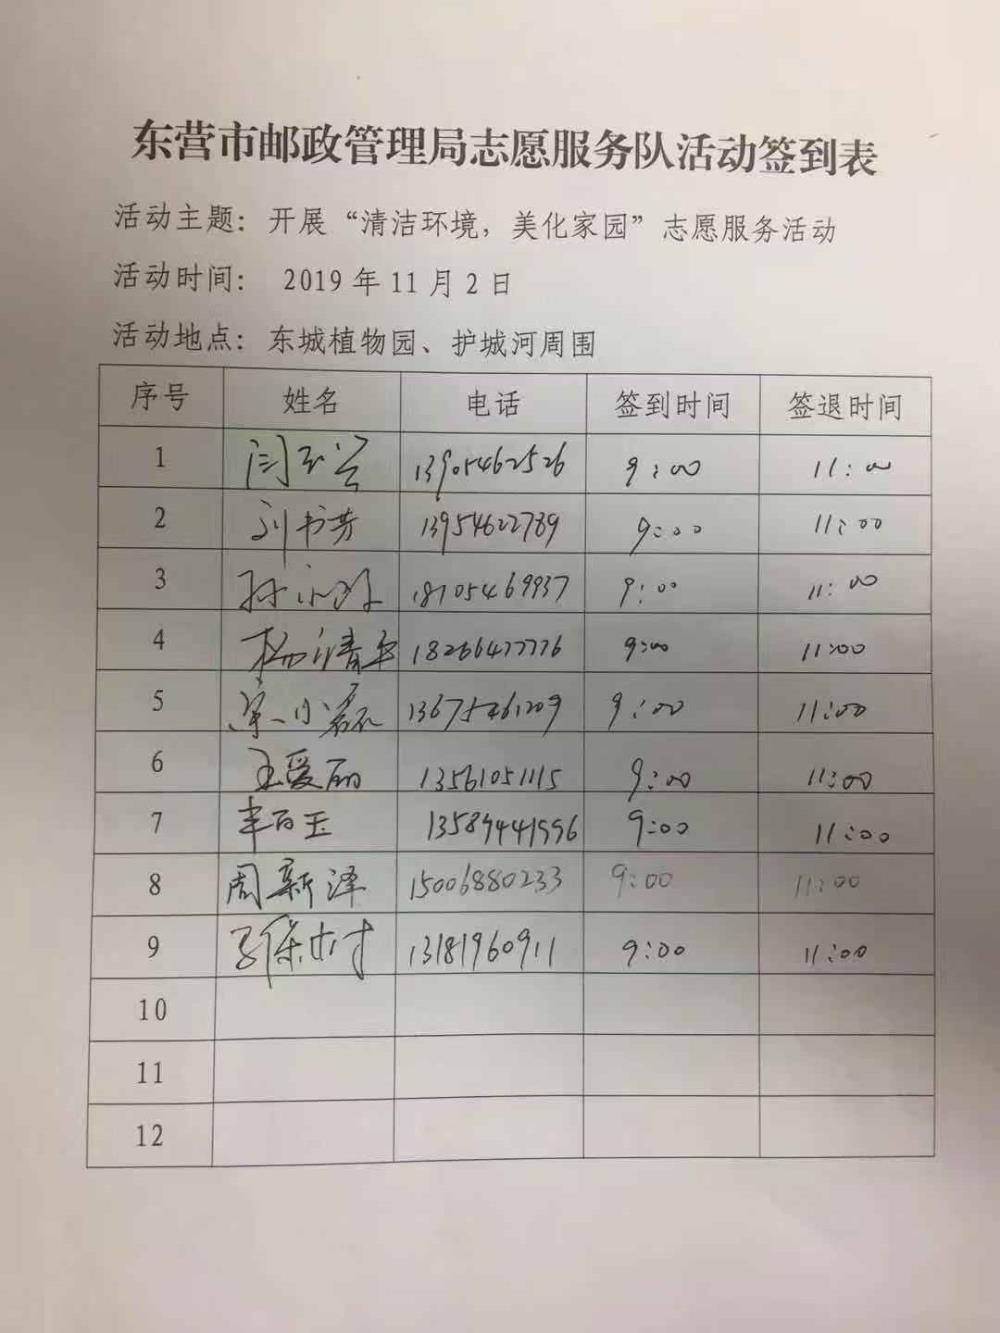 东营市邮政管理局志愿服务队活动签到表
活动主题：开展“清洁环境，美化家园”志愿服务活动
活动时间： 2019年11月2日
活动地点：东城植物园、护城河周围
序号 姓名 电话 签到时间 签退时间
1 13905462526 9:00 11:00
2 刘书芳 13954622789 9:00 11:00
3 18105469937 9:00 11:00
4 18266477776 9:00 11:00
5 宋小磊 13675461209 9:00 11:00
6 王爱丽 13561051115 9:00 11:00
7 丰百玉 13589441996 9:00 11:00
8 周新泽 15006880233 9:00 11:00
9 13181960911 9:00 11:00
10
11
12